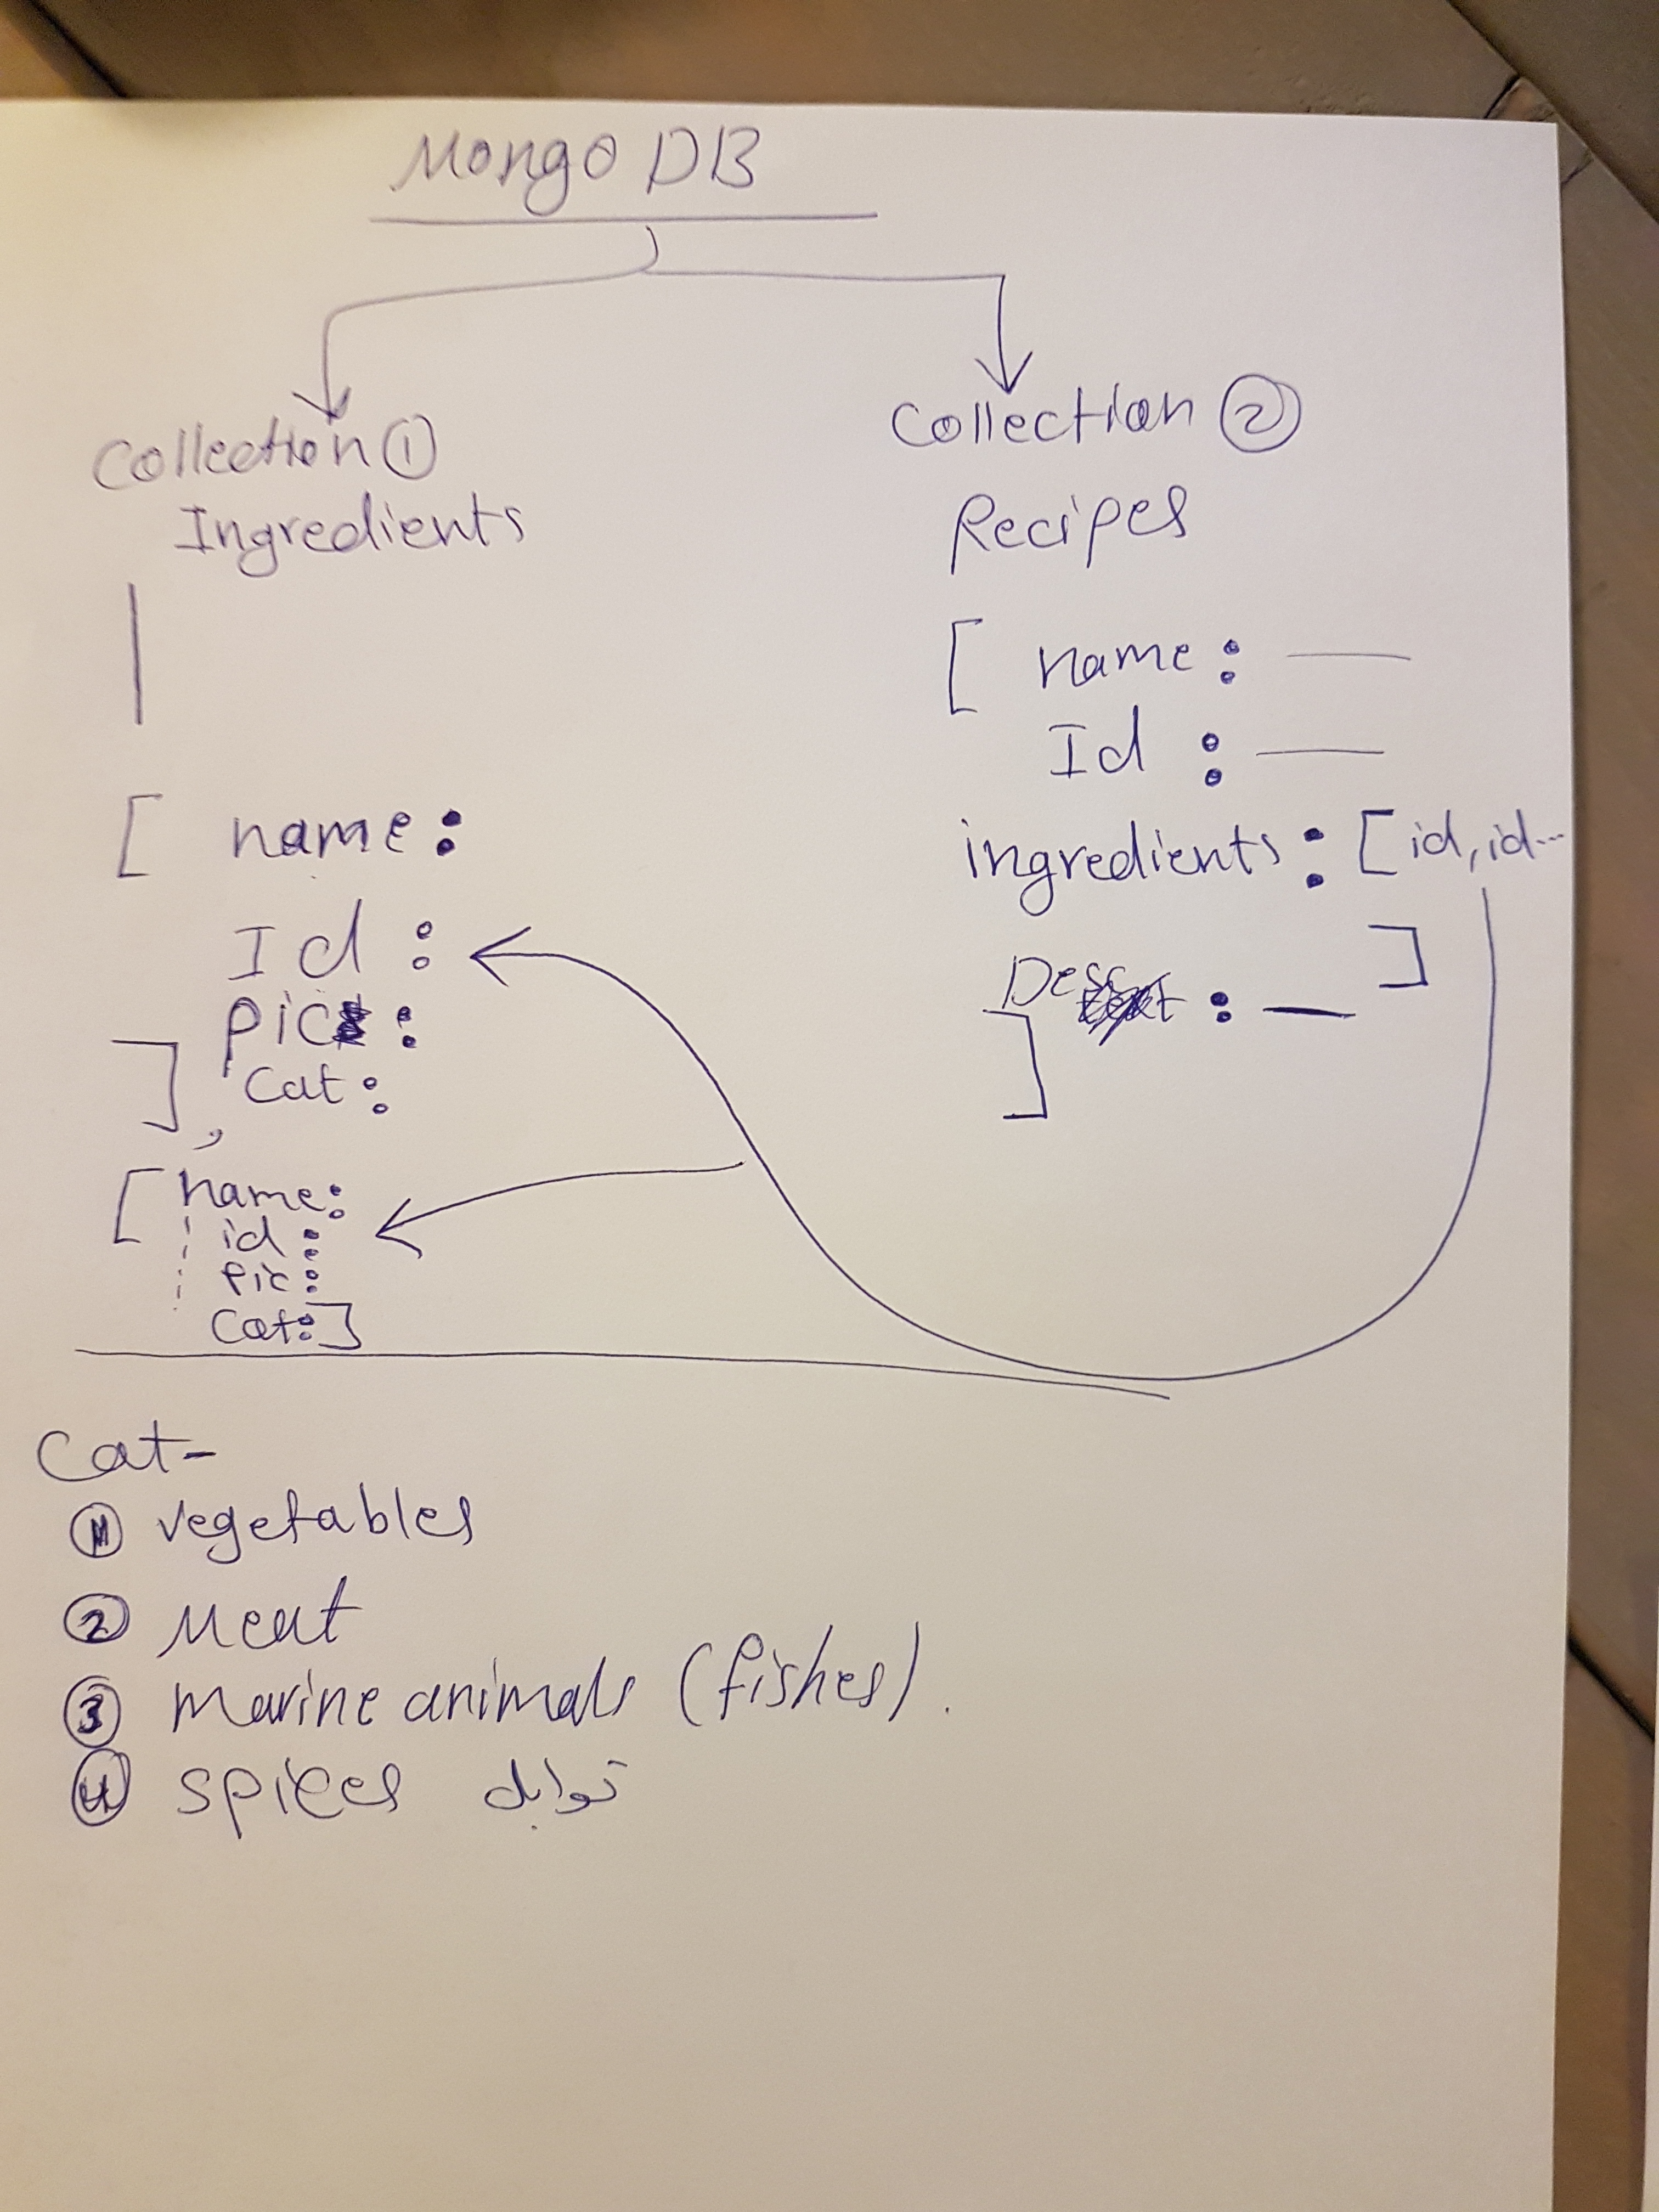 Mongo DB
Collection ①
Ingredients
[ name :
Id :
pic :
Cat :
] ,
[ name :
id :
pic :
Cat : ]
Collection ②
Recipes
[ name : —
Id : —
ingredients : [ id, id ...
]
Desc : —
]
Cat -
① vegetables
② Meat
③ marine animals (fishes).
④ spices توابل